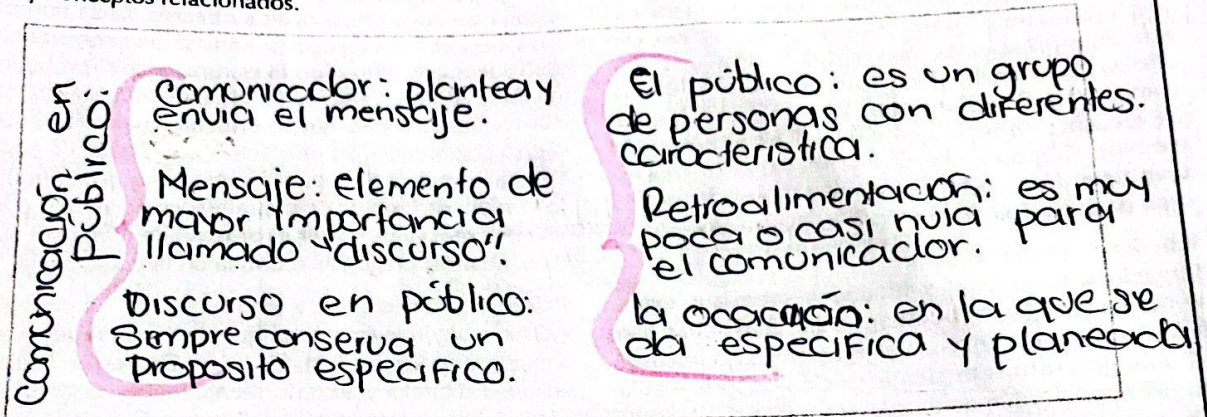 y conceptos relacionados.
Comunicación
Pública
Comunicador: plantea y
envia el mensaje.
Mensaje: elemento de
mayor importancia
llamado "discurso".
Discurso en público:
Simpre conserva un
Proposito específico.
El público: es un grupo
de personas con diferentes.
caracteristica.
Retroalimentación: es muy
poca o casi nula para
el comunicador.
la ocacación: en la que se
da especifica y planeada